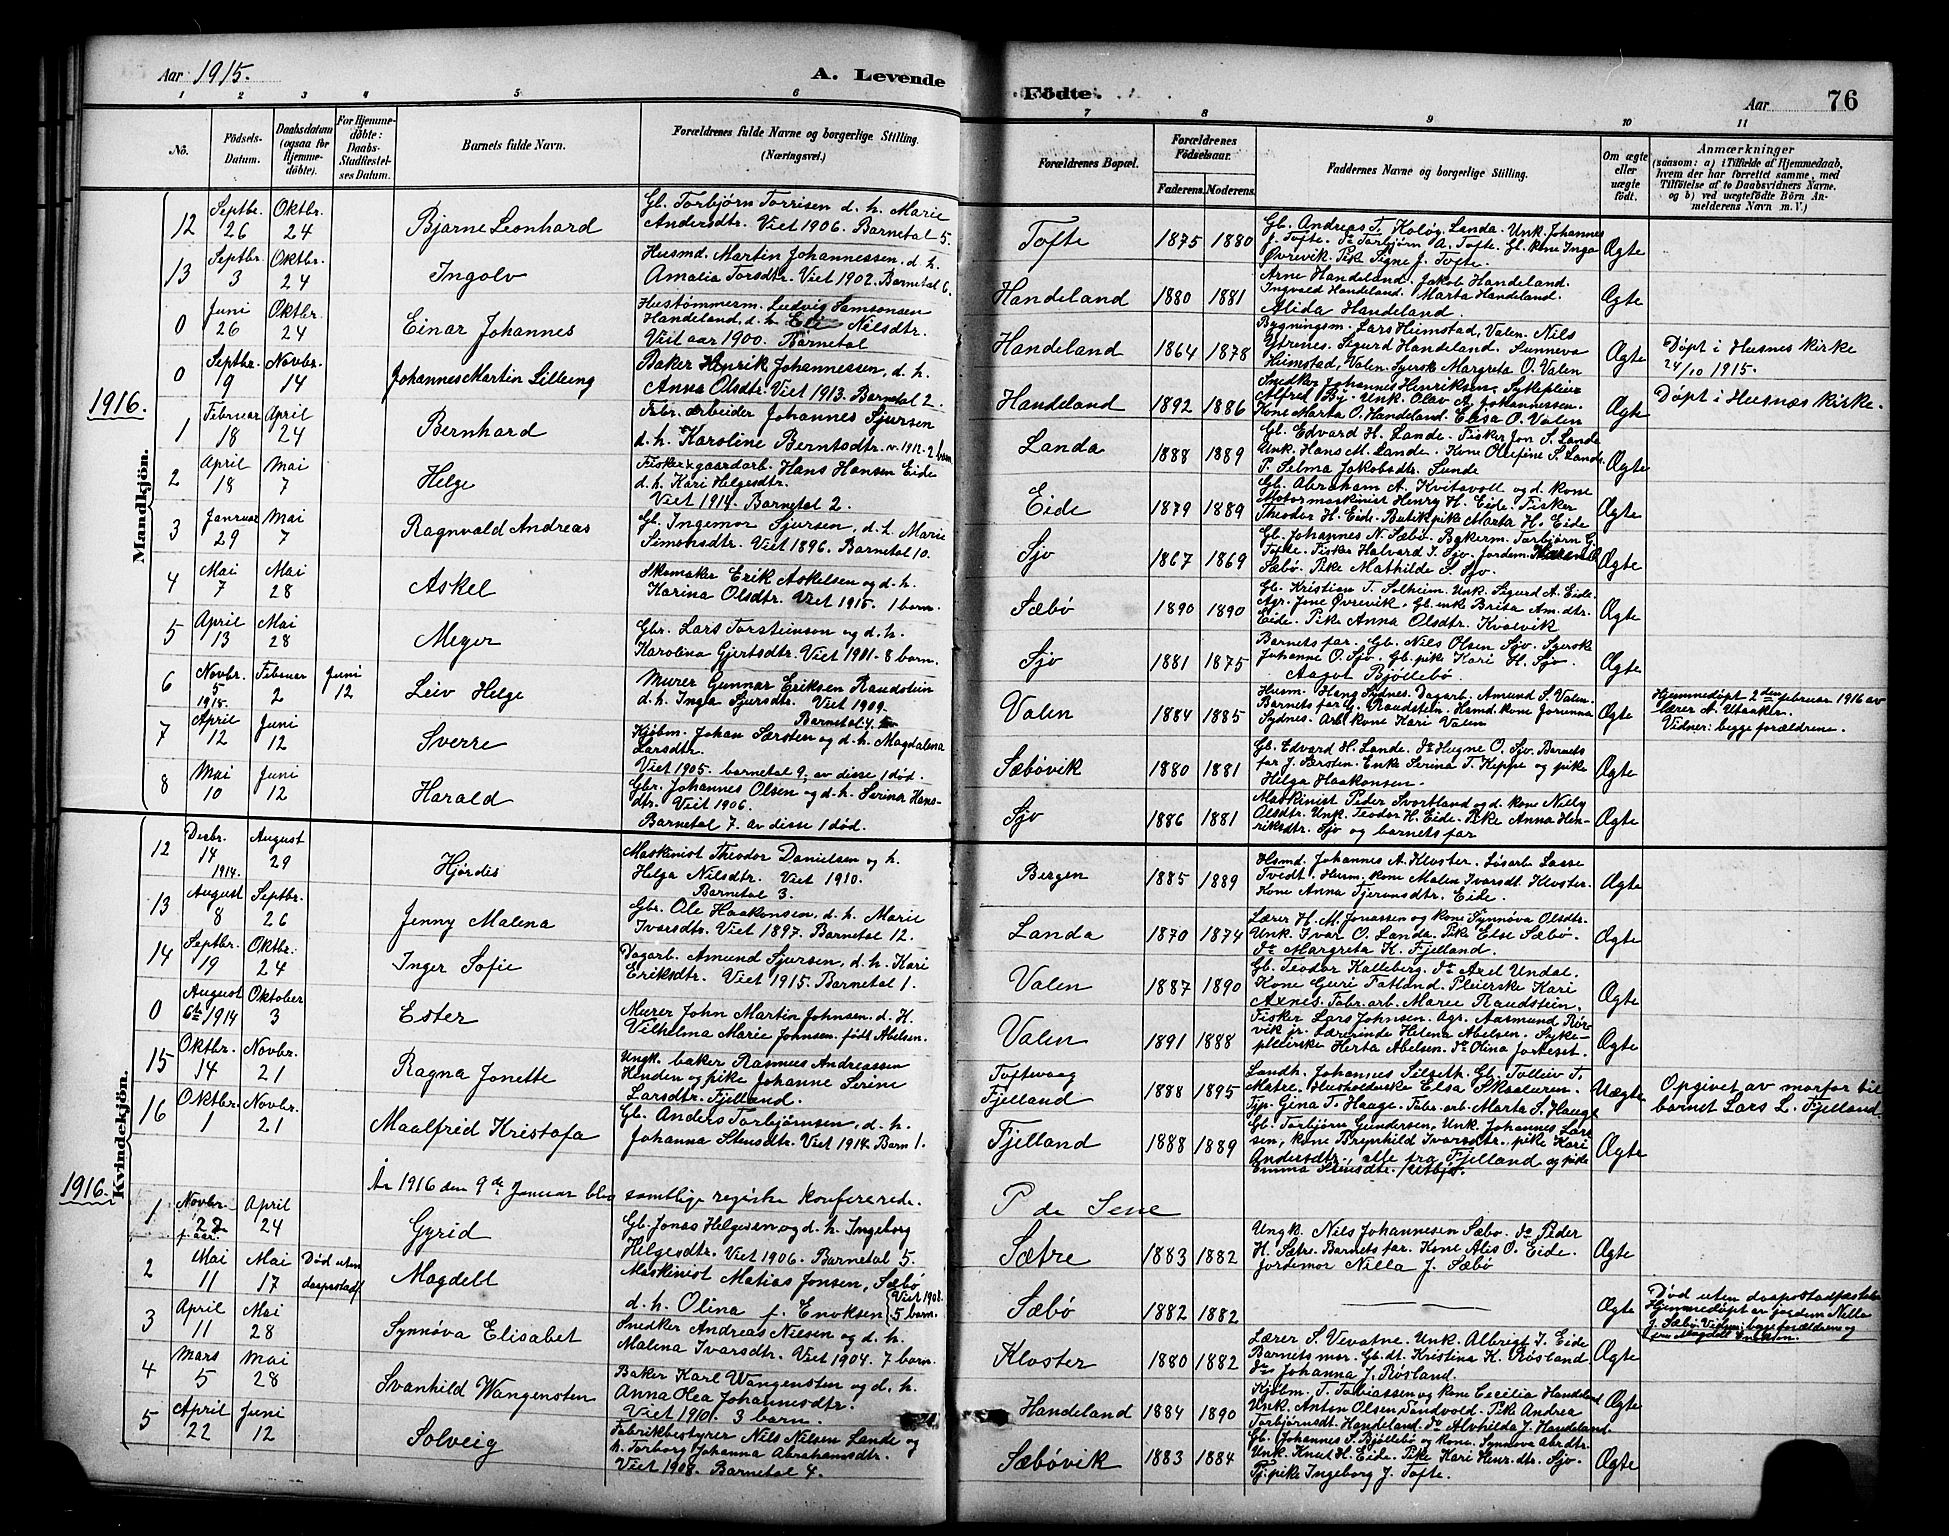 Aar 1915.
A. Levende
1 2 3 4 5 6
No.
Födsels-
Datum.
Daabsdatum
(ogsaa for
Hjemme-
døbte).
For Hjemme-
døbte:
Daabs-
Stadfæstel-
ses Datum.
Barnets fulde Navn.
Forældrenes fulde Navne og borgerlige Stilling.
(Næringsvei.)
Mandkjön.
12 Septbr. 26 Oktbr. 24 Bjarne Leonhard
Gb. Torbjørn Torrisen d. h. Marie
Andersdtr. Viet 1906. Barnetal 5.
13 Septbr. 3 Oktbr. 24 Ingolv
Husmd. Martin Johannessen. d. h.
Amalia Torsdtr. Viet 1902. Barnetal 6.
0 Juni 26 Oktbr. 24 Einar Johannes
Hustømmerm. Ludvig Samsonsen
Handeland, d. h. Eli Nilsdtr.
Viet aar 1900. Barnetal
0 Septbr. 19 Novbr. 14 Johannes Martin Lilleng
Baker Henrik Johannessen, d. h.
Anna Olsdtr. Viet 1913. Barnetal 2.
1916.
1 Februar 18 April 24 Bernhard
Fabr. arbeider Johannes Sjursen
d. h. Karoline Berntsdtr. v. 1912. 2 barn
2 April 18 Mai 7 Helge
Fisker x gaardarb. Hans Hansen Eide
d. h. Kari Helgesdtr.
Viet 1914. Barnetal 2.
3 Januar 29 Mai 7 Ragnvald Andreas
Gb. Ingemor Sjursen, d. h. Marie
Simonsdtr. Viet 1896. Barnetal 10.
4 Mai 7 Mai 28 Askel
Skomaker Erik Askelsen og d. h.
Karina Olsdtr. Viet 1915. 1 barn.
5 April 13 Mai 28 Meyer
Gbr. Lars Torsteinson og d. h.
Karolina Gjertsdtr. Viet 1901 - 8 barn.
6 Novbr. 5 1915. Februar 2 Juni 12 Leiv Helge
Murer Gunnar Eriksen Raudstein
d. h. Inga Sjursdtr. Viet 1909.
Barnetal 4.
7 April 12 Juni 12 Sverre
Kjøbm. Johan Sørsten og d. h. Magdalena
Larsdtr.
Viet 1905. barnetal 9, av disse 1 død.
8 Mai 10 Juni 12 Harald
Gbr. Johannes Olsen og d. h. Serina Hans-
dtr. Viet 1906.
Barnetal 7. av disse 1 død.
Kvindekjön.
12 Desbr. 14 1914. August 29 Hjørdis
Maskinist Theodor Danielsen og h.
Helga Nilsdtr. Viet 1910.
Barnetal 3.
13 August 8 Septbr. 26 Jenny Malena
Gbr. Ole Haakonsen, d. h. Marie
Ivarsdtr. Viet 1897. Barnetal 12.
14 Septbr. 19 Oktbr. 24 Inger Sofie
Dagarb. Amund Sjursen, d. h. Kari
Eriksdtr. Viet 1915. Barnetal 1.
0 August 6te 1914 Oktober 3 Ester
Murer John Martin Johnsen. d. H.
Vilhelma Marie Johnsen. født Abelsen.
15 Oktbr. 14 Novbr. 21 Ragna Jonette
Ungk. baker Rasmus Andreassen
Henden og pike Johanne Serine
Larsdtr. Fjelland.
16 Oktbr. 1 Novbr. 21 Maalfrid Kristofa
Gb. Anders Torbjørnsen, d. h.
Johanna Stensdtr. Viet 1914. Barn 1.
År 1916 den 9de Januar blev samtlige registre konfererede.
1916.
1 Novbr. 22 f. aar. April 24 Gyrid
Gb. Jonas Helgesen og d. h. Ingeborg
Helgesdtr. Viet 1906. Barnetal 5.
2 Mai 11 Mai 17 Død uten daapsstadf. Magdell
Maskinist Matias Jonsen, Sæbø
d. h. Olina f. Enoksen Viet 1908. 5 barn.
3 April 11 Mai 28 Synnøva Elisabet
Snedker Andreas Nilsen og d. h.
Malena Ivarsdtr. Viet 1904. 7 barn.
4 Mars 5 Mai 28 Svanhild Wangensten
Baker Karl Wangensten og d. h.
Anna Olea Johannesdtr.
Viet 1910. 3 barn.
5 April 22 Juni 12 Solveig
Fabrikbestyrer Nils Nilsen Lande og
h. Torborg Johanna Abrahamsdtr.
Viet 1908. Barnetal 4.
Födte.
Aar 76
7 8 9 10 11
Forældrenes Bopæl.
Forældrenes
Födselsaar.
Faderens. Moderens.
Faddernes Navne og borgerlige Stilling.
Om ægte
eller
uægte
födt.
Anmærkninger
(saasom: a) i Tilfælde af Hjemmedaab,
hvem der har forrettet samme, med
Tilföielse af to Daabsvidners Navne,
og b) ved uægtefödte Börn An-
melderens Navn m. V.)
Tofte 1875 1880
Gb. Andreas T. Koløg, Landa. Unk. Johannes
J. Tofte. Do Torbjørn A. Tofte. Gb. kone Inga
Øvrevik. Pik. Signe J. Tofte.
Ægte
Handeland 1880 1881
Arne Handeland. Jakob Handeland.
Ingvald Handeland. Marta Handeland.
Alida Handeland.
Ægte
Handeland 1864 1878
Bygningsm. Lars Heimstad, Valen. Nils
Ytrenes. Sigurd Handeland. Sunneva
Heimstad, Valen. Syersk Margreta O. Valen
Ægte
Døpt i Husnes kirke
24/10 1915.
Handeland 1892 1886
Snedker Johannes Henriksen. Sykepleier
Alfred By. Unk. Olav A. Johannessen.
Kone Marta O. Handeland. Elisa O. Valen
Ægte
Døpt i Husnæs kirke.
Landa 1888 1889
Gb. Edvard H. Lande. Fisker Jon S. Lande
Unk. Hans M. Lande. Kone Olefine S. Lande.
P. Selma Jakobsdtr. Sunde
Ægte
Eide 1879 1889
Gb. Abraham A. Kvitavoll og d. kone
Motormaskinist Henry H. Eide. Fisker
Theodor H. Eide. Butikpike Marta H. Eide
Ægte
Sjo 1867 1869
Gb. Johannes N. Sæbø. Bøkerm. Torbjørn G.
Tofte. Fisker Halvard I. Sjo. Jordem.
Sæbø. Pike Mathilde S. Sjo.
Ægte
Sæbø 1890 1890
Gb. Kristian T. Solheim. Unk. Sigurd A. Eide.
Agr. Jone Øvrevik. Gb. enk Brita Am.dtr.
Eide. Pike Anna Olsdtr. Kvalvik
Ægte
Sjo 1881 1875
Barnets far. Gb. Nils Olsen Sjo. Syersk
Johanne O. Sjo. Gb. pike Kari H. Sjo.
Aagot Bjøllebø.
Ægte
Valen 1884 1885
Husm. Hans Sydnes. Dagarb. Amund S. Valen.
Barnets far G. Raudstein. Hsmd. kone Jorunna
Sydnes. Arb. kone Kari Valen
Ægte
Hjemmedøpt 2den februar 1916 av
lærer A. Utaaker.
Vidner: begge forældrene.
Sæbøvik 1880 1881
Gb. Edvard H. Lande. Do Hugne O. Sjo. Barnets
far J. Sørsten. Enke Serina T. Keppe og pike
Helga Haakonsen.
Ægte
Sjo 1886 1881
Maskinist Peder Svortland og d. kone Nilly
Olsdtr. Unk. Teodor H. Eide. Pike Anna Hen-
riksdtr. Sjo og barnets far
Ægte
Bergen 1885 1889
Hsmd. Johannes A. Kloster. Løsarb. Lasse
Tvedt. Husm. kone Malen Ivarsdt. Kloster.
Kone Anna Tjeransdtr. Eide.
Ægte
Landa 1870 1874
Lærer H. M. Jonassen og kone Synnøva Olsdtr.
Unk. Ivar O. Landa. Pike Else Sæbø.
Do Margreta K. Fjelland.
Ægte
Valen 1887 1890
Gb. Teodor Kalleberg. Do Axel Undal.
Kone Guri Fatland. Pleierske Kari
Axnes. Fabr. arb. Marie Raudstein.
Ægte
Valen 1891 1888
Fisker Lars Johnsen. Agr. Aasmund Rør-
vik jr. Lærerinde Helena Abelsen. Syke-
pleierske Herta Abelsen. Do Olina Forteset.
Ægte
Toftevaag
Fjelland 1888 1895
Landh. Johannes Silseth. Gb. Tolleiv T.
Matre. Husholderske Elsa Skaaluren.
Tjp. Gina T. Hauge. Fabr. arb. Marta S. Hauge
Uægte
Opgivet av morfar til
barnet Lars L. Fjelland.
Fjelland 1888 1889
Gb. Torbjørn Gundersen, Unk. Johannes Lars-
sen, kone Brynhild Ivarsdtr. pike Kari
Andersdtr., alle fra Fjelland og pike
Emma Stensdtr.
Ægte
P de Seue
Sætre 1883 1882
Ungk. Nils Johannesen Sæbø. Do Peder
H. Sætre. Barnets far. Kone Alis O. Eide.
Jordemor Nilla J. Sæbø
Ægte
Sæbø 1882 1882
Ægte
Død uten daapsstadfæstelse
Hjemmedøpt av jordem. Nilla
J. Sæbø. Vidner: begge forældrene og
fru Magdell Enoksen.
Kloster 1880 1882
Lærer S. Vevatne. Unk. Albrigt I. Eide
Barnets mor. Gb. dt. Kristina K. Røsland
Do Johanna J. Røsland.
Ægte
Handeland 1884 1890
Kjøbm. T. Tobiassen og kone Cecilia Handeland
Unk. Anton Olsen, Sandvold. Pike Andrea
Torbjørnsdt. Handeland. Do Alvhilda J. Handeland.
Ægte
Sæbøvik 1883 1884
Gb. Johannes S. Bjøllebø og kone Synnøva Abrdtr.
Unk. Knud H. Eide. Pike Kari Henr.dtr. Sjo.
Tj. pike Ingeborg J. Tofte.
Ægte